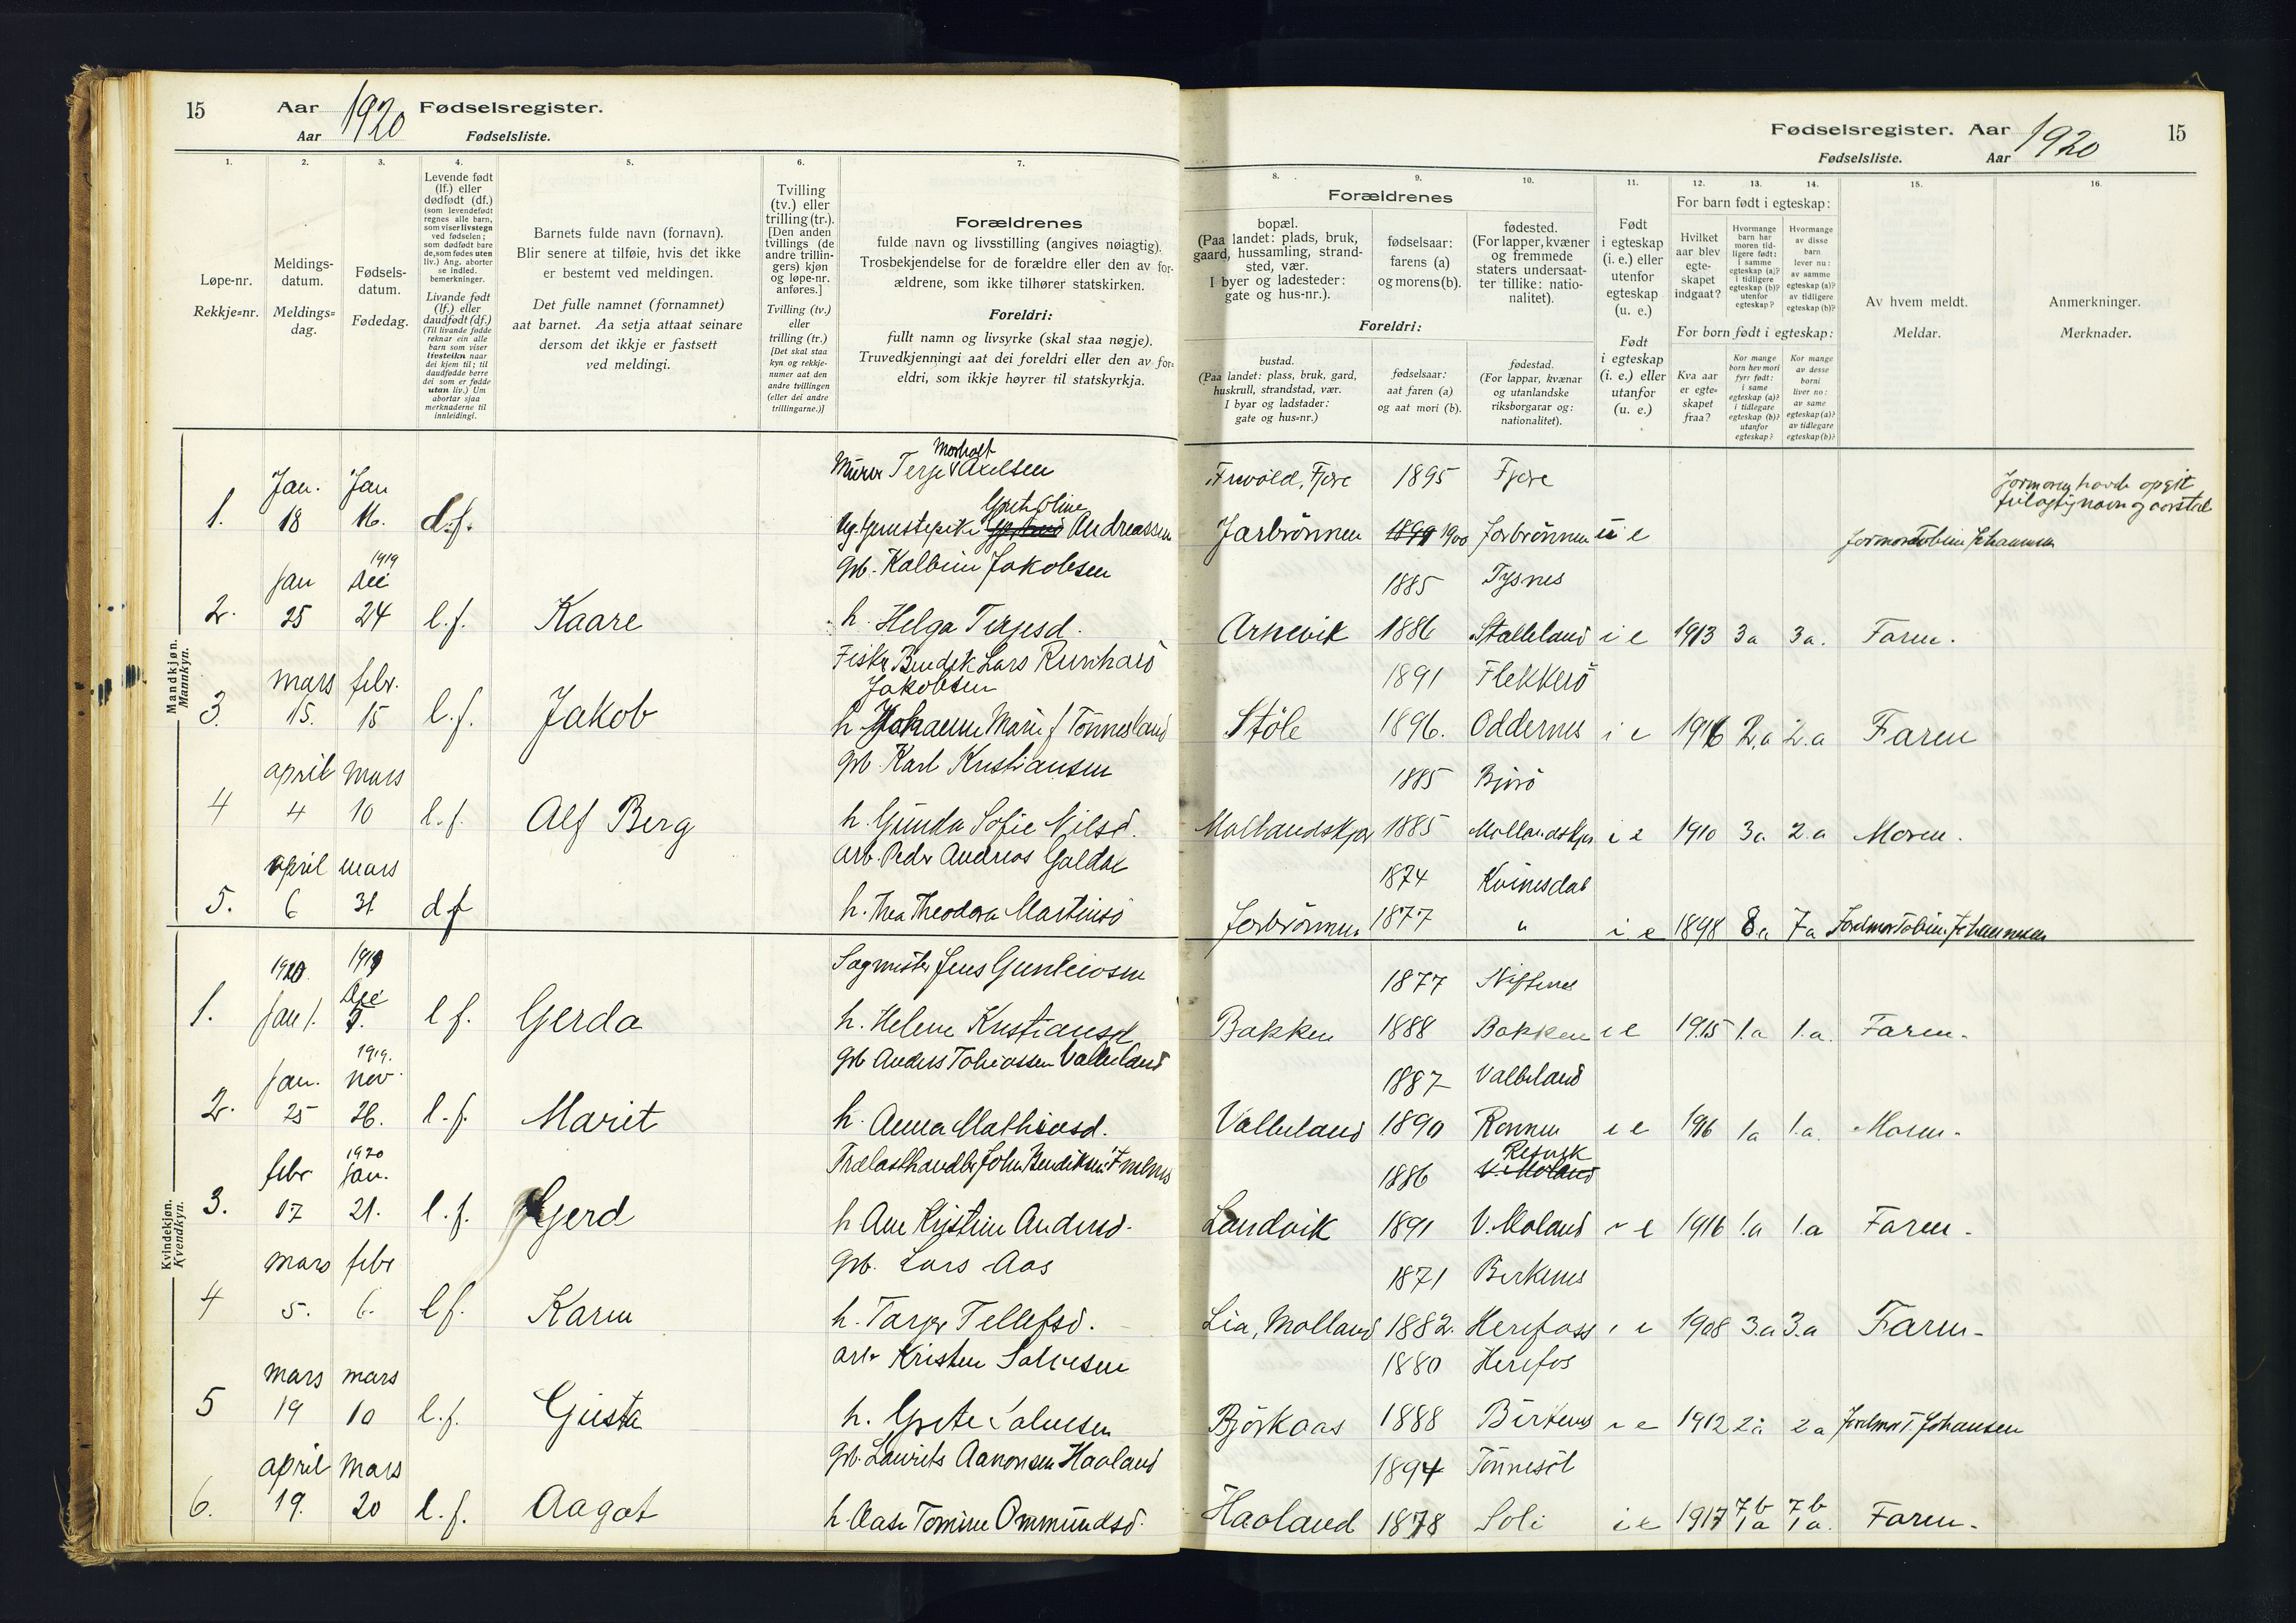 15 Aar 1920 Fødselsregister.
Aar Fødselsliste.
1.
2.
3.
4.
5.
6.
7.
Løpe-nr.
Rekkje=nr.
Meldings-
datum.
Meldings=
dag.
Fødsels-
datum.
Fødedag.
Levende født
(lf.) eller
dødfødt (df.)
(som levendefødt
regnes alle barn,
som viser livstegn
ved fødselen;
som dødfødt bare
de, som fødes uten
liv.) Ang. aborter
se indled.
bemerkninger.
Livande født
(lf.) eller
daudfødt (df.)
(Til livande fødde
reknar ein alle
barn som viser
livsteikn naar
dei kjem til; til
daudfødde berre
dei som er fødde
utan liv.) Um
abortar sjaa
merknaderne til
innleidingi.
Barnets fulde navn (fornavn).
Blir senere at tilføie, hvis det ikke
er bestemt ved meldingen.
Det fulle namnet (fornamnet)
aat barnet. Aa setja attaat seinare
dersom det ikkje er fastsett
ved meldingi.
Tvilling
(tv.) eller
trilling (tr.).
[Den anden
tvillings (de
andre trillin-
gers) kjøn
og løpe-nr.
anføres.]
Tvilling (tv.)
eller
trilling (tr.)
[Det skal staa
kyn og rekkje-
numer aat den
andre tvillingen
(eller dei andre
trillingarne.)]
Forældrenes
fulde navn og livsstilling (angives nøiagtig).
Trosbekjendelse for de forældre eller den av for-
ældrene, som ikke tilhører statskirken.
Foreldri:
fullt namn og livsyrke (skal staa nøgje).
Truvedkjenningi aat dei foreldri eller den av for=
eldri, som ikkje høyrer til statskyrkja.
Mandkjøn.
Mannkyn.
Morholt
Murer Terje Axelsen
Jan. Jan
Grete Oline
1. 18 16. d.f. Andreassen
1919
Jan Dec gb. Kalbein Jakobsen
2. 25 24 l.f. Kaare h. Helga Terjesd.
Fisker Bendik Lars Reinhard
mars febr. Jakobsen
3. 15. 15 l.f. Jakob h. Johanne Marie f Tønnesland
april mars gb Karl Kristiansen
4 4 10 l.f. Alf Berg h. Gunda Sofie Nilsd.
april mars arb. Peder Andreas Galdal
5. 6 31 df h. Thea Theodora Martinsd
Kvindekjøn.
Kvendkyn.
1920 1919 Sagmester Jens Gunleiosen
Dec
1. Jan 1. 5. l f. Gerda h. Helene Kristiansd
1919.
Jan. nov. gb Anders Tobiassen Valleland
2. 25 26. l.f. Marit h. Anna Mathiasd.
1920
febr Jan. Trælasthandler John Bendiksen
3. 17 21. l.f. Gerd h Ane Kristine Andersd.
mars febr gb. Lars Aas
4 5. 6. l f. Karen h. Tarjer Tellefsd.
mars mars arb Kristen Salvesen
5 19 10 l.f. Gusta h. Grete Salvesen
april mars gb. Laurits Aanonsen Haaland
6. 19. 20 l.f. Aagot h. Aase Tomine Ommundsd.
Fødselsregister. Aar 1920 15
Fødselsliste. Aar
8.
9.
10.
11.
12.
13.
14.
15.
16.
Forældrenes
bopæl.
(Paa landet: plads, bruk,
gaard, hussamling, strand-
sted, vær.
I byer og ladesteder:
gate og hus-nr.).
fødselsaar:
farens (a)
og morens (b).
fødested.
(For lapper, kvæner
og fremmede
staters undersaat-
ter tillike: natio-
nalitet).
Foreldri:
bustad.
(Paa landet: plass, bruk, gard,
huskrull, strandstad, vær.
I byar og ladstader:
gate og hus=nr.)
fødselsaar:
aat faren (a)
og aat mori (b).
fødestad.
(For lappar, kvænar
og utanlandske
riksborgarar og:
nationalitet).
Født
i egteskap
(i. e.) eller
utenfor
egteskap
(u. e.)
Født
i egteskap
(i. e.) eller
utanfor
(u. e.)
For barn født i egteskap:
Hvilket
aar blev
egte-
skapet
indgaat?
Hvormange
barn har
moren tid-
ligere født:
i samme
egteskap (a)?
i tidligere
egteskap (b)?
utenfor
egteskap?
Hvormange
av disse
barn
lever nu:
av samme
egteskap (a)?
av tidligere
egteskap (b)?
For born født i egteskap:
Kva aar
er egte=
skapet
fraa?
Kor mange
born hev mori
fyrr født:
i same
egteskap (a)?
i tidlegare
egteskap (b)?
utanfor
egteskap?
Kor mange
av desse
borni
liver no:
av same
egteskap (a)?
av tidlegare
egteskap (b)?
Av hvem meldt.
Meldar.
Anmerkninger.
Merknader.
Frivold, Fjære 1895 Fjære
Jormoren havde opgit
feilagtig navn og aarstal
Jorbrønnen 1899 1900 Jorbrønnen u e Jormor Tobine Johannesen
1885 Tysnes
Arnevik 1886 Stalleland i e 1913 3a 3a. Faren.
1891 Flekkerö
Støle 1896. Oddernes i e 1916 2.a 2.a Faren
1885
Mollandskjær 1885 Mollandskjær i e 1910 3a 2.a Moren.
1874 Kvinesdal
Jorbrønnen 1877 " i e 1898 8.a 7a Jordmor Tobine Johannesen
1877
Bakken 1888 Bakken i e 1915 1.a 1.a. Faren.
1887 Valleland
Valleland 1890 i e 1916 1a 1.a. Moren.
Resvik
1886 V. Moland
Landvik 1891 V. Moland i e 1916 1.a 1.a Faren.
1871 Birkenes
Lia, Molland 1882. Herefoss i e 1908 3.a 3.a Faren.
1880 Herefos
Björkaas 1888 Birkenes i e 1912 2a 2a Jordmor T. Johansen
1894 Tönnesöl
7b 7b
Haaland 1878 Soli i e 1917 1a 1a. Faren.